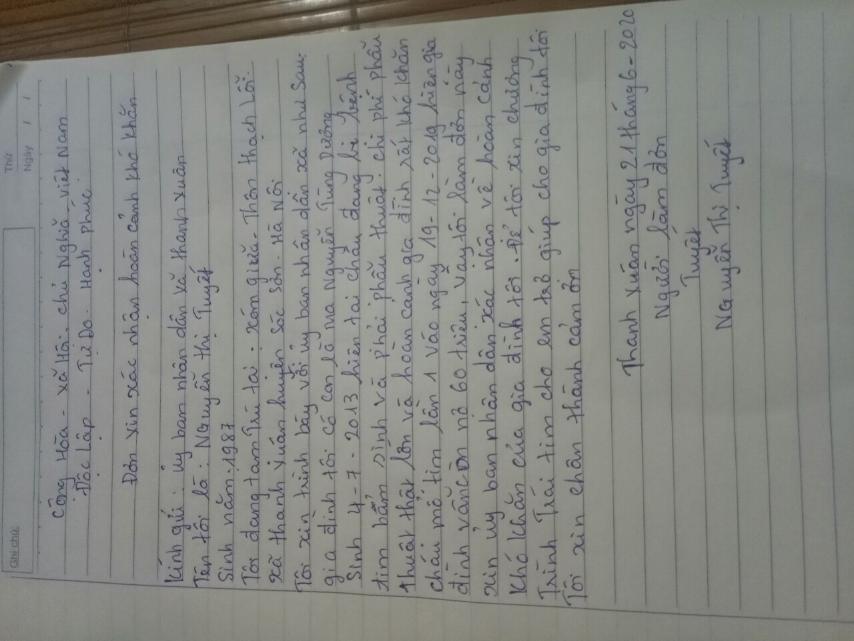 Ghi chú:
Thứ
Ngày / /
Cộng Hòa - Xã Hội - chủ Nghĩa Việt Nam
Độc Lập - Tự Do - Hạnh phúc
Đơn xin xác nhận hoàn cảnh khó khăn
Kính gửi : ủy ban nhân dân xã thanh xuân
Tên tôi là : Nguyễn thị Tuyết
Sinh năm : 1987
Tôi đang tạm Trú tại : xóm giữa - Thôn thạch lỗi
xã thanh xuân huyện sóc sơn - Hà Nội
Tôi xin trình bày với ủy ban nhân dân xã như sau:
gia đình tôi có con là Nguyễn Tùng Dương
Sinh 4 - 7 - 2013 hiện tại cháu đang bị bệnh
tim bẩm sinh và phải phẫu thuật. chi phí phẫu
thuật thật lớn và hoàn cảnh gia đình rất khó khăn
cháu mổ tim lần 1 vào ngày 19 - 12 - 2019 hiện gia
đình vẫn còn nợ 60 triệu, vậy tôi làm đơn này
xin ủy ban nhân dân xác nhận về hoàn cảnh
khó khăn của gia đình tôi. Để tôi xin chương
Trình Trái tim cho em trợ giúp cho gia đình tôi
Tôi xin chân thành cảm ơn
Thanh xuân ngày 21 tháng 6 - 2020
Người làm đơn
Tuyết
Nguyễn Thị Tuyết